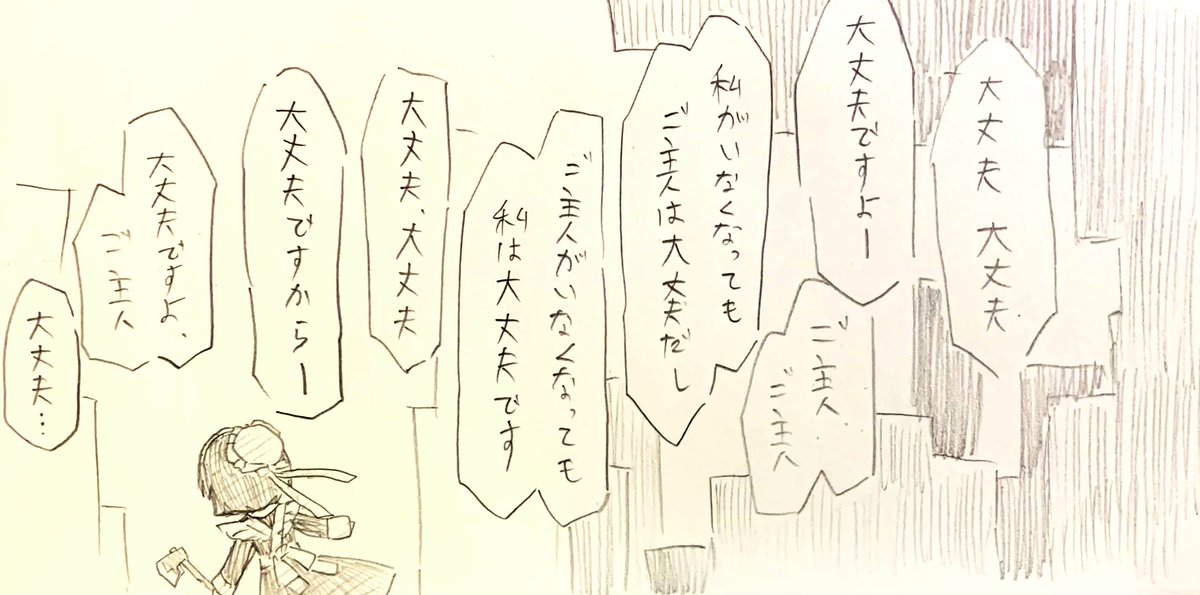 大丈夫 大丈夫
大丈夫ですよー
ご主人
ご主人
私がいなくなっても
ご主人は大丈夫だし
ご主人がいなくなっても
私は大丈夫です
大丈夫、大丈夫
大丈夫ですからー
大丈夫ですよ、
ご主人
大丈夫…